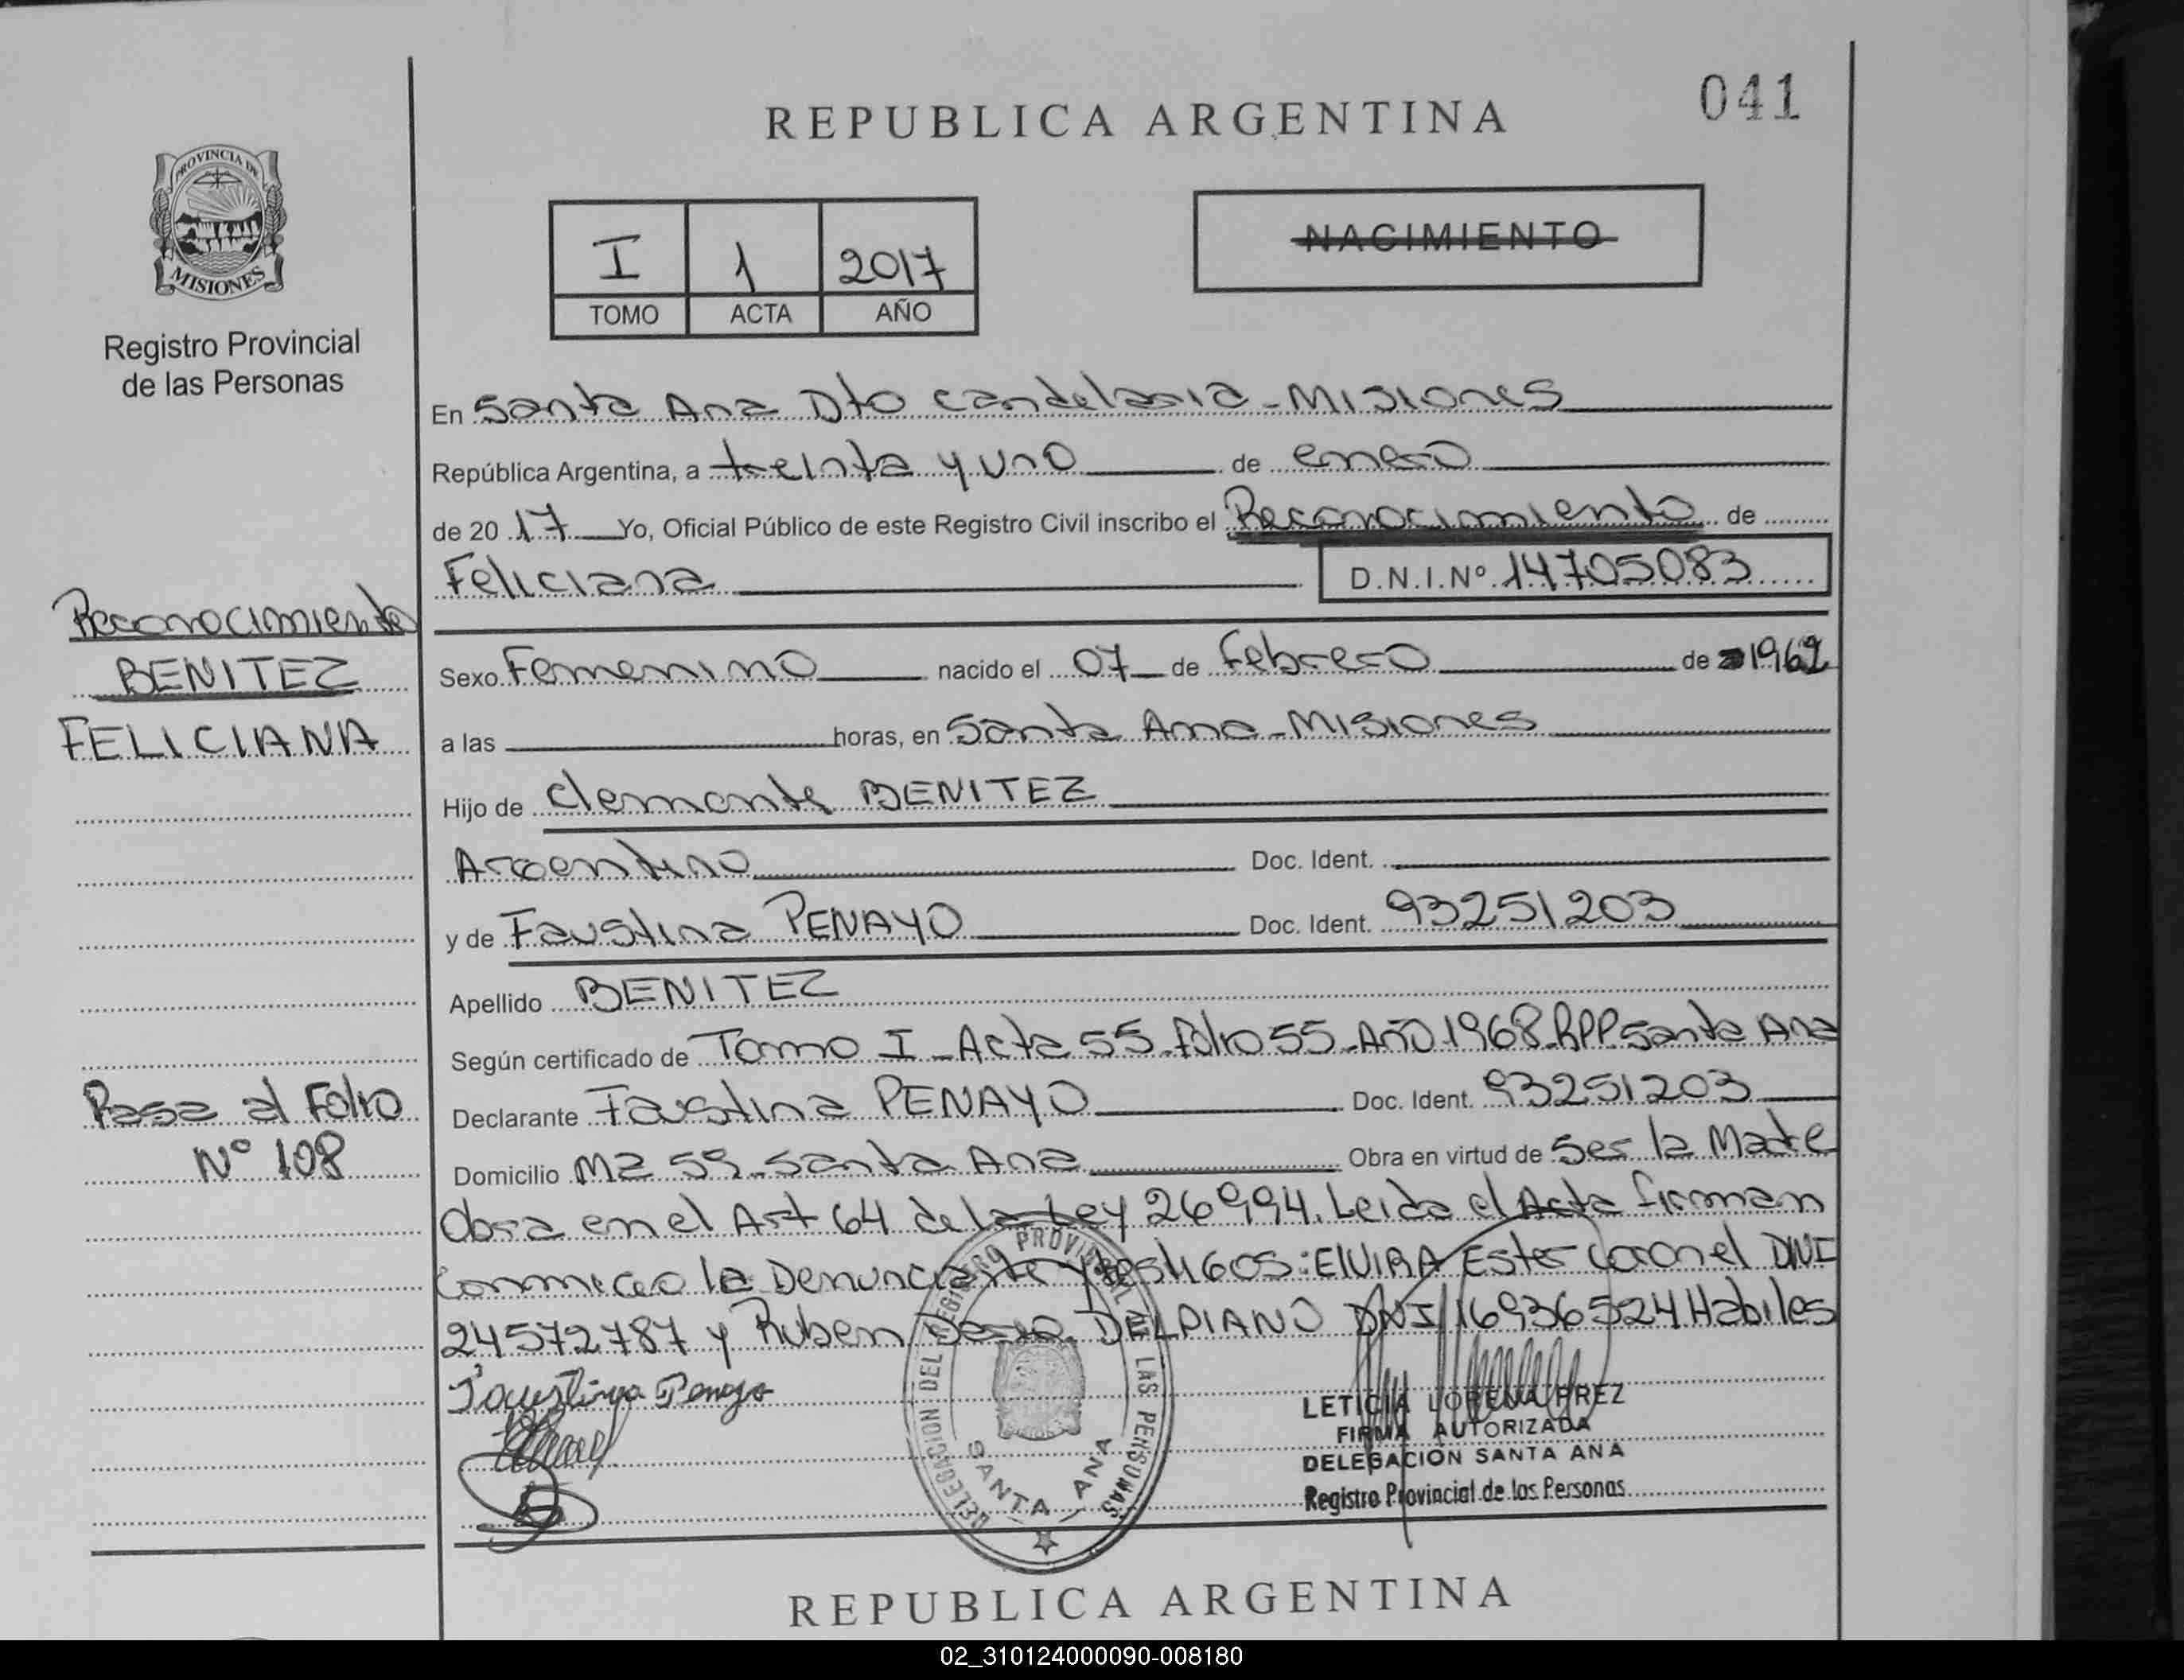 REPUBLICA ARGENTINA
041
PROVINCIA DE
MISIONES
Registro Provincial
de las Personas
I 1 2017
TOMO ACTA AÑO
NACIMIENTO
En Santa Ana Dto Candelaria - Misiones
República Argentina, a treinta y uno de enero
de 20 17 Yo, Oficial Público de este Registro Civil inscribo el Reconocimiento de
Feliciana D.N.I.Nº 14705083
Reconocimiento
BENITEZ
FELICIANA
Sexo Femenino nacido el 07 de febrero de 1962
a las horas, en Santa Ana - Misiones
Hijo de Clemente BENITEZ
Argentino Doc. Ident.
y de Faustina PENAYO Doc. Ident. 93251203
Apellido BENITEZ
Según certificado de Tomo I - Acta 55 - folio 55 - Año 1968 RPP Santa Ana
Pasa al Folio
Nº 108
Declarante Faustina PENAYO Doc. Ident. 93251203
Domicilio Mz 59 - Santa Ana Obra en virtud de Ser la Madre
Obra en el Art 64 de la Ley 26994. Leida el Acta firman
conmigo la Denunciante y testigos: ElVIRA Ester Coronel DNI
24572787 y Ruben DELPIANO DNI 16936524 Habiles
Faustina Penayo
DELEGACION DEL REGISTRO PROVINCIAL DE LAS PERSONAS
SANTA ANA
LETICIA LORENA PREZ
FIRMA AUTORIZADA
DELEGACION SANTA ANA
Registro Provincial de las Personas
REPUBLICA ARGENTINA
02_310124000090-008180